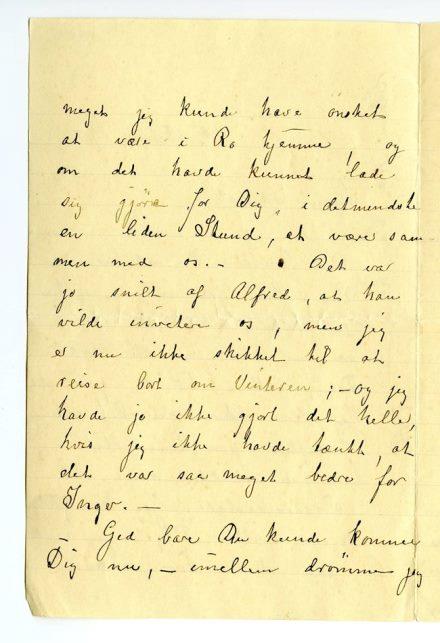 meget jeg kunde have ønsket
at være i Ro hjemme, og
om det havde kunnet lade
sig gjøre for Dig, i detmendste
en liden Stund, at være sam-
men med os. - Det var
jo snilt af Alfred, at han
vilde invitere os, men jeg
er nu ikke skikket til at
reise bort om Vinteren; - og jeg
havde jo ikke gjort det heller,
hvis jeg ikke havde tænkt, at
det var saa meget bedre for
Inger. -
Gid bare Du kunde komme
Dig nu, - imellem drömmer jeg